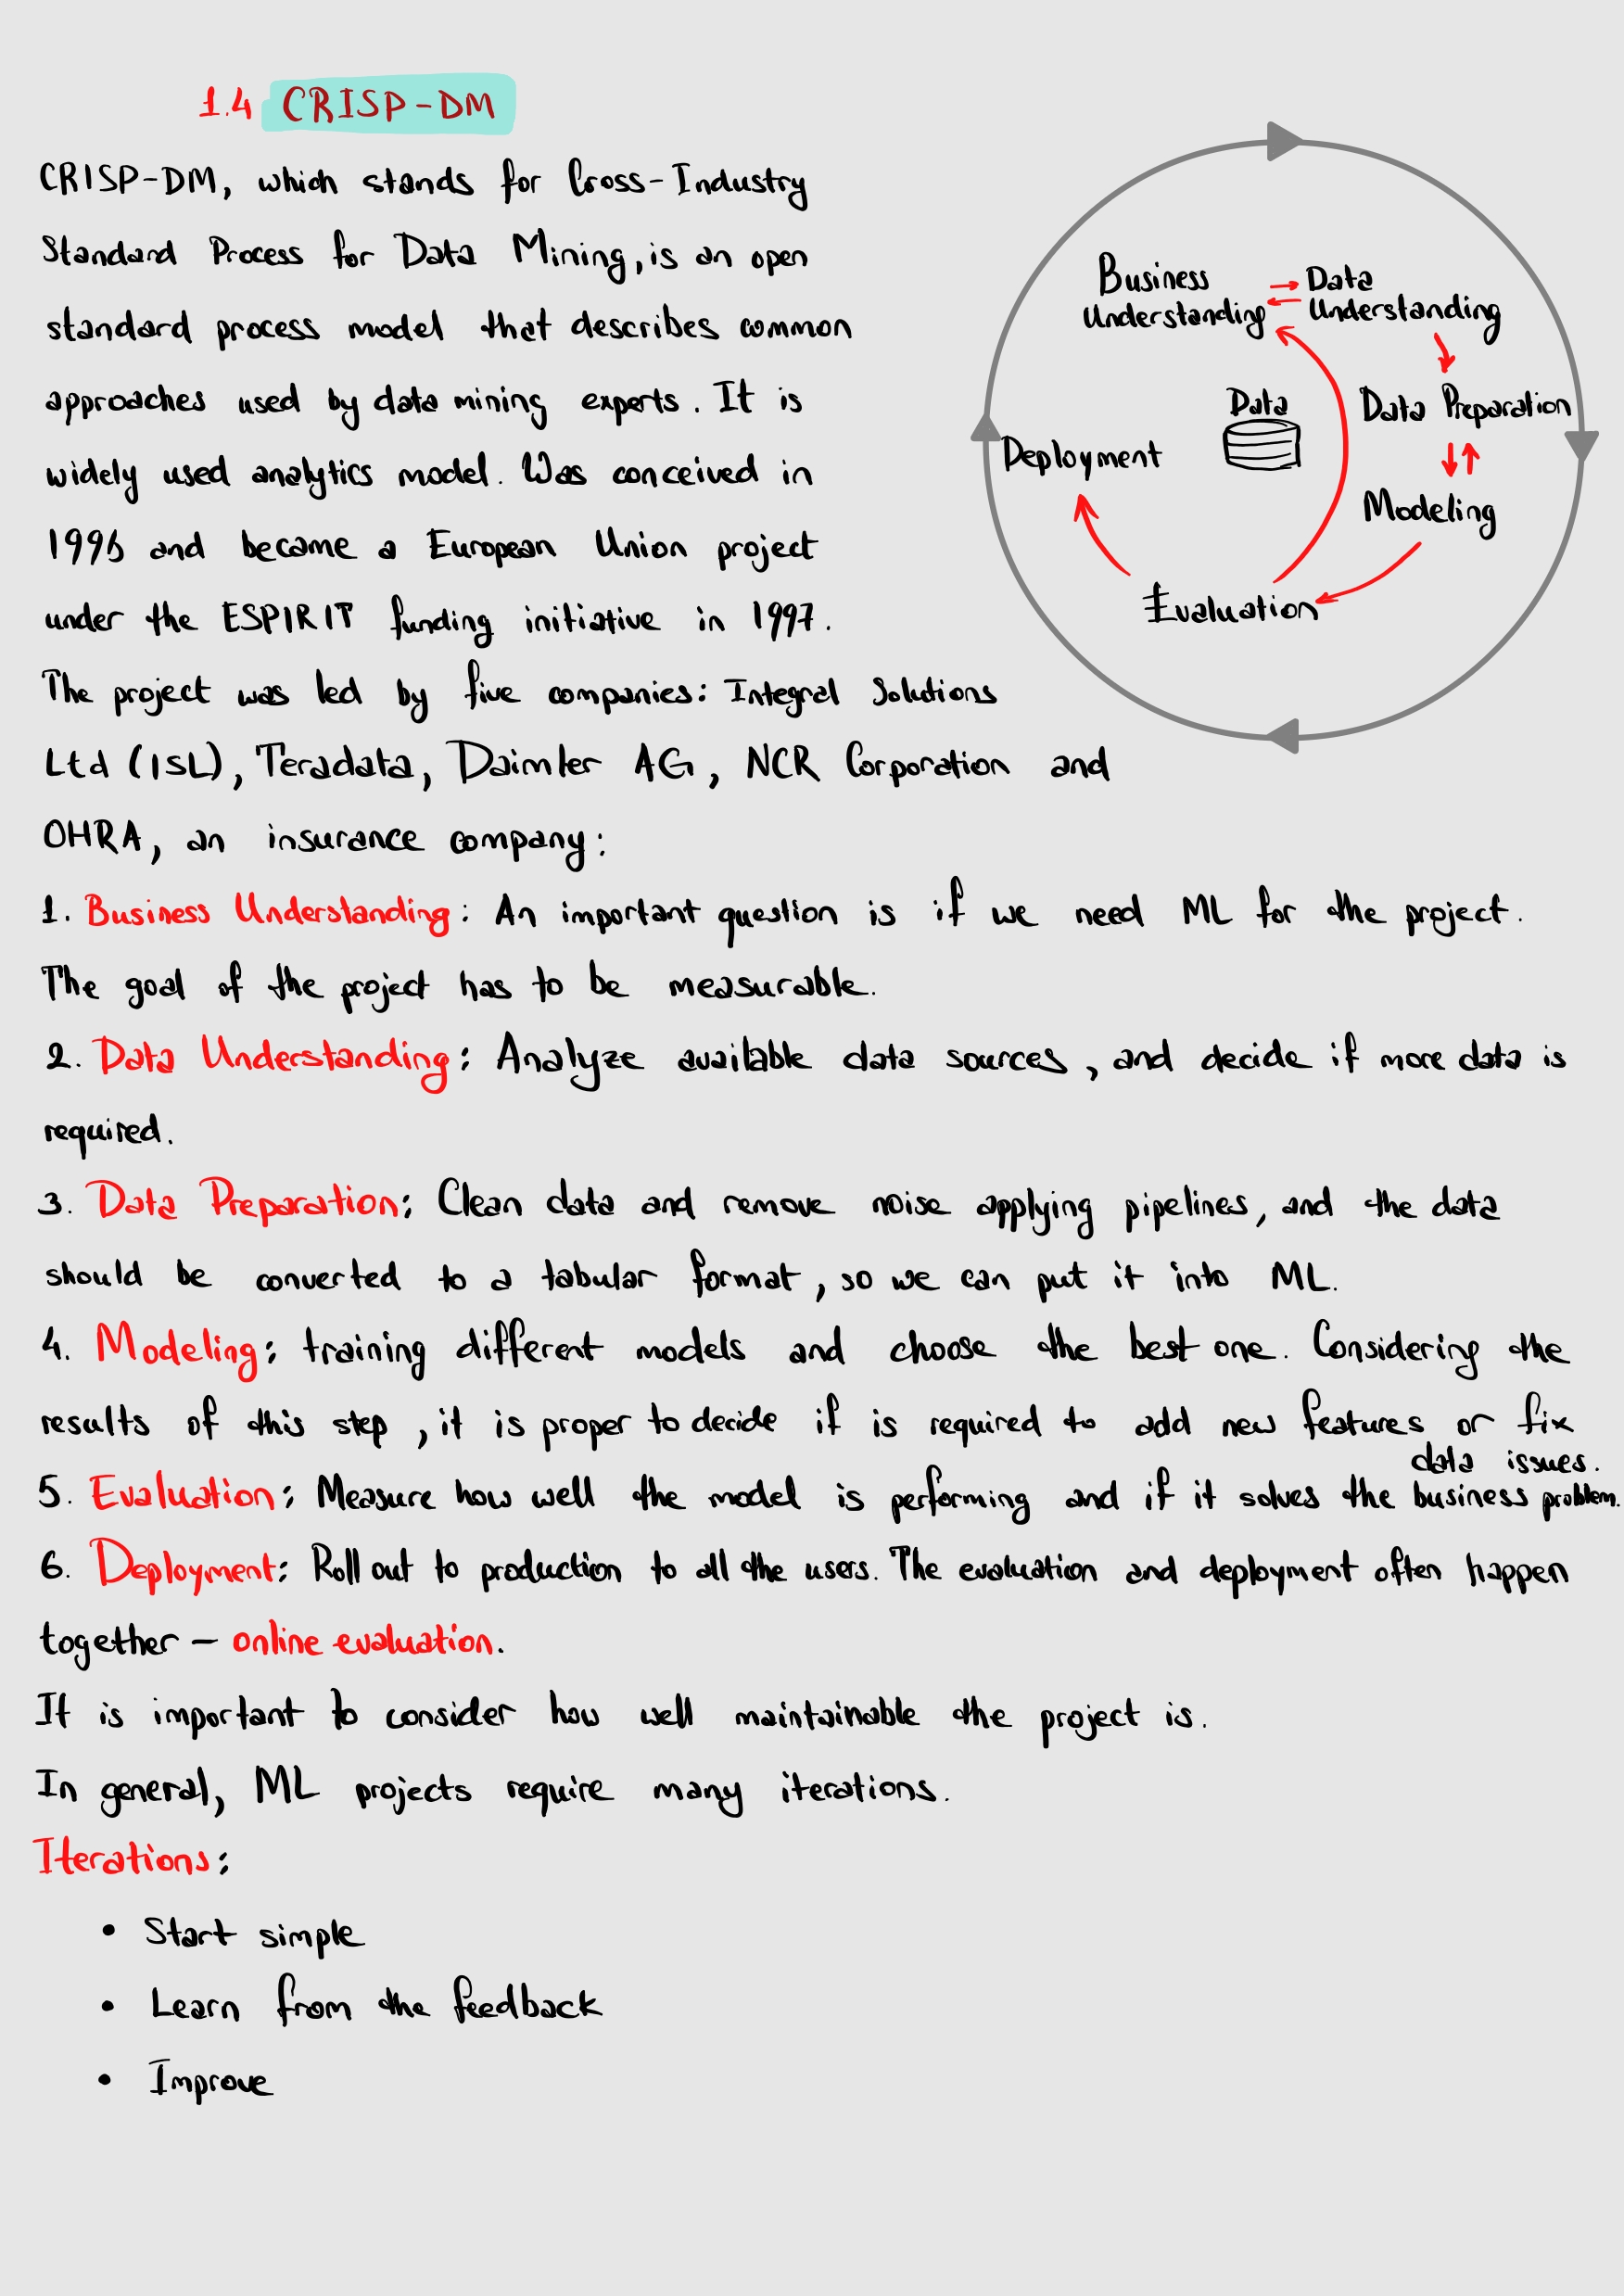 1.4 CRISP-DM
CRISP-DM, which stands for Cross-Industry
Standard Process for Data Mining, is an open
standard process model that describes common
approaches used by data mining experts. It is
widely used analytics model. Was conceived in
1996 and became a European Union project
under the ESPIRIT funding initiative in 1997.
The project was led by five companies: Integral Solutions
Ltd (ISL), Teradata, Daimler AG, NCR Corporation and
OHRA, an insurance company:
Business
Understanding
Data
Understanding
Data Preparation
Data
Deployment
Modeling
Evaluation
1. Business Understanding: An important question is if we need ML for the project.
The goal of the project has to be measurable.
2. Data Understanding: Analyze available data sources, and decide if more data is
required.
3. Data Preparation: Clean data and remove noise applying pipelines, and the data
should be converted to a tabular format, so we can put it into ML.
4. Modeling: training different models and choose the best one. Considering the
results of this step, it is proper to decide if is required to add new features or fix
data issues.
5. Evaluation: Measure how well the model is performing and if it solves the business problem.
6. Deployment: Roll out to production to all the users. The evaluation and deployment often happen
together – online evaluation.
It is important to consider how well maintainable the project is.
In general, ML projects require many iterations.
Iterations:
• Start simple
• Learn from the feedback
• Improve